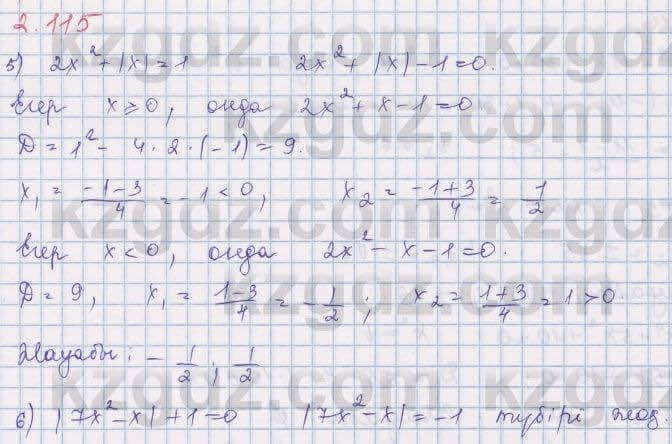 2.115
5) 2x² + |x| = 1 2x² + |x| - 1 = 0.
Егер x ≥ 0, онда 2x² + x - 1 = 0
D = 1² - 4 · 2 · (-1) = 9.
x₁ = (-1-3)/4 = -1 < 0, x₂ = (-1+3)/4 = 1/2
Егер x < 0, онда 2x² - x - 1 = 0.
D = 9, x₁ = (1-3)/4 = -1/2; x₂ = (1+3)/4 = 1 > 0.
Жауабы: -1/2; 1/2
6) |7x² - x| + 1 = 0 |7x² - x| = -1 түбірі жоқ.
kzgdz.com